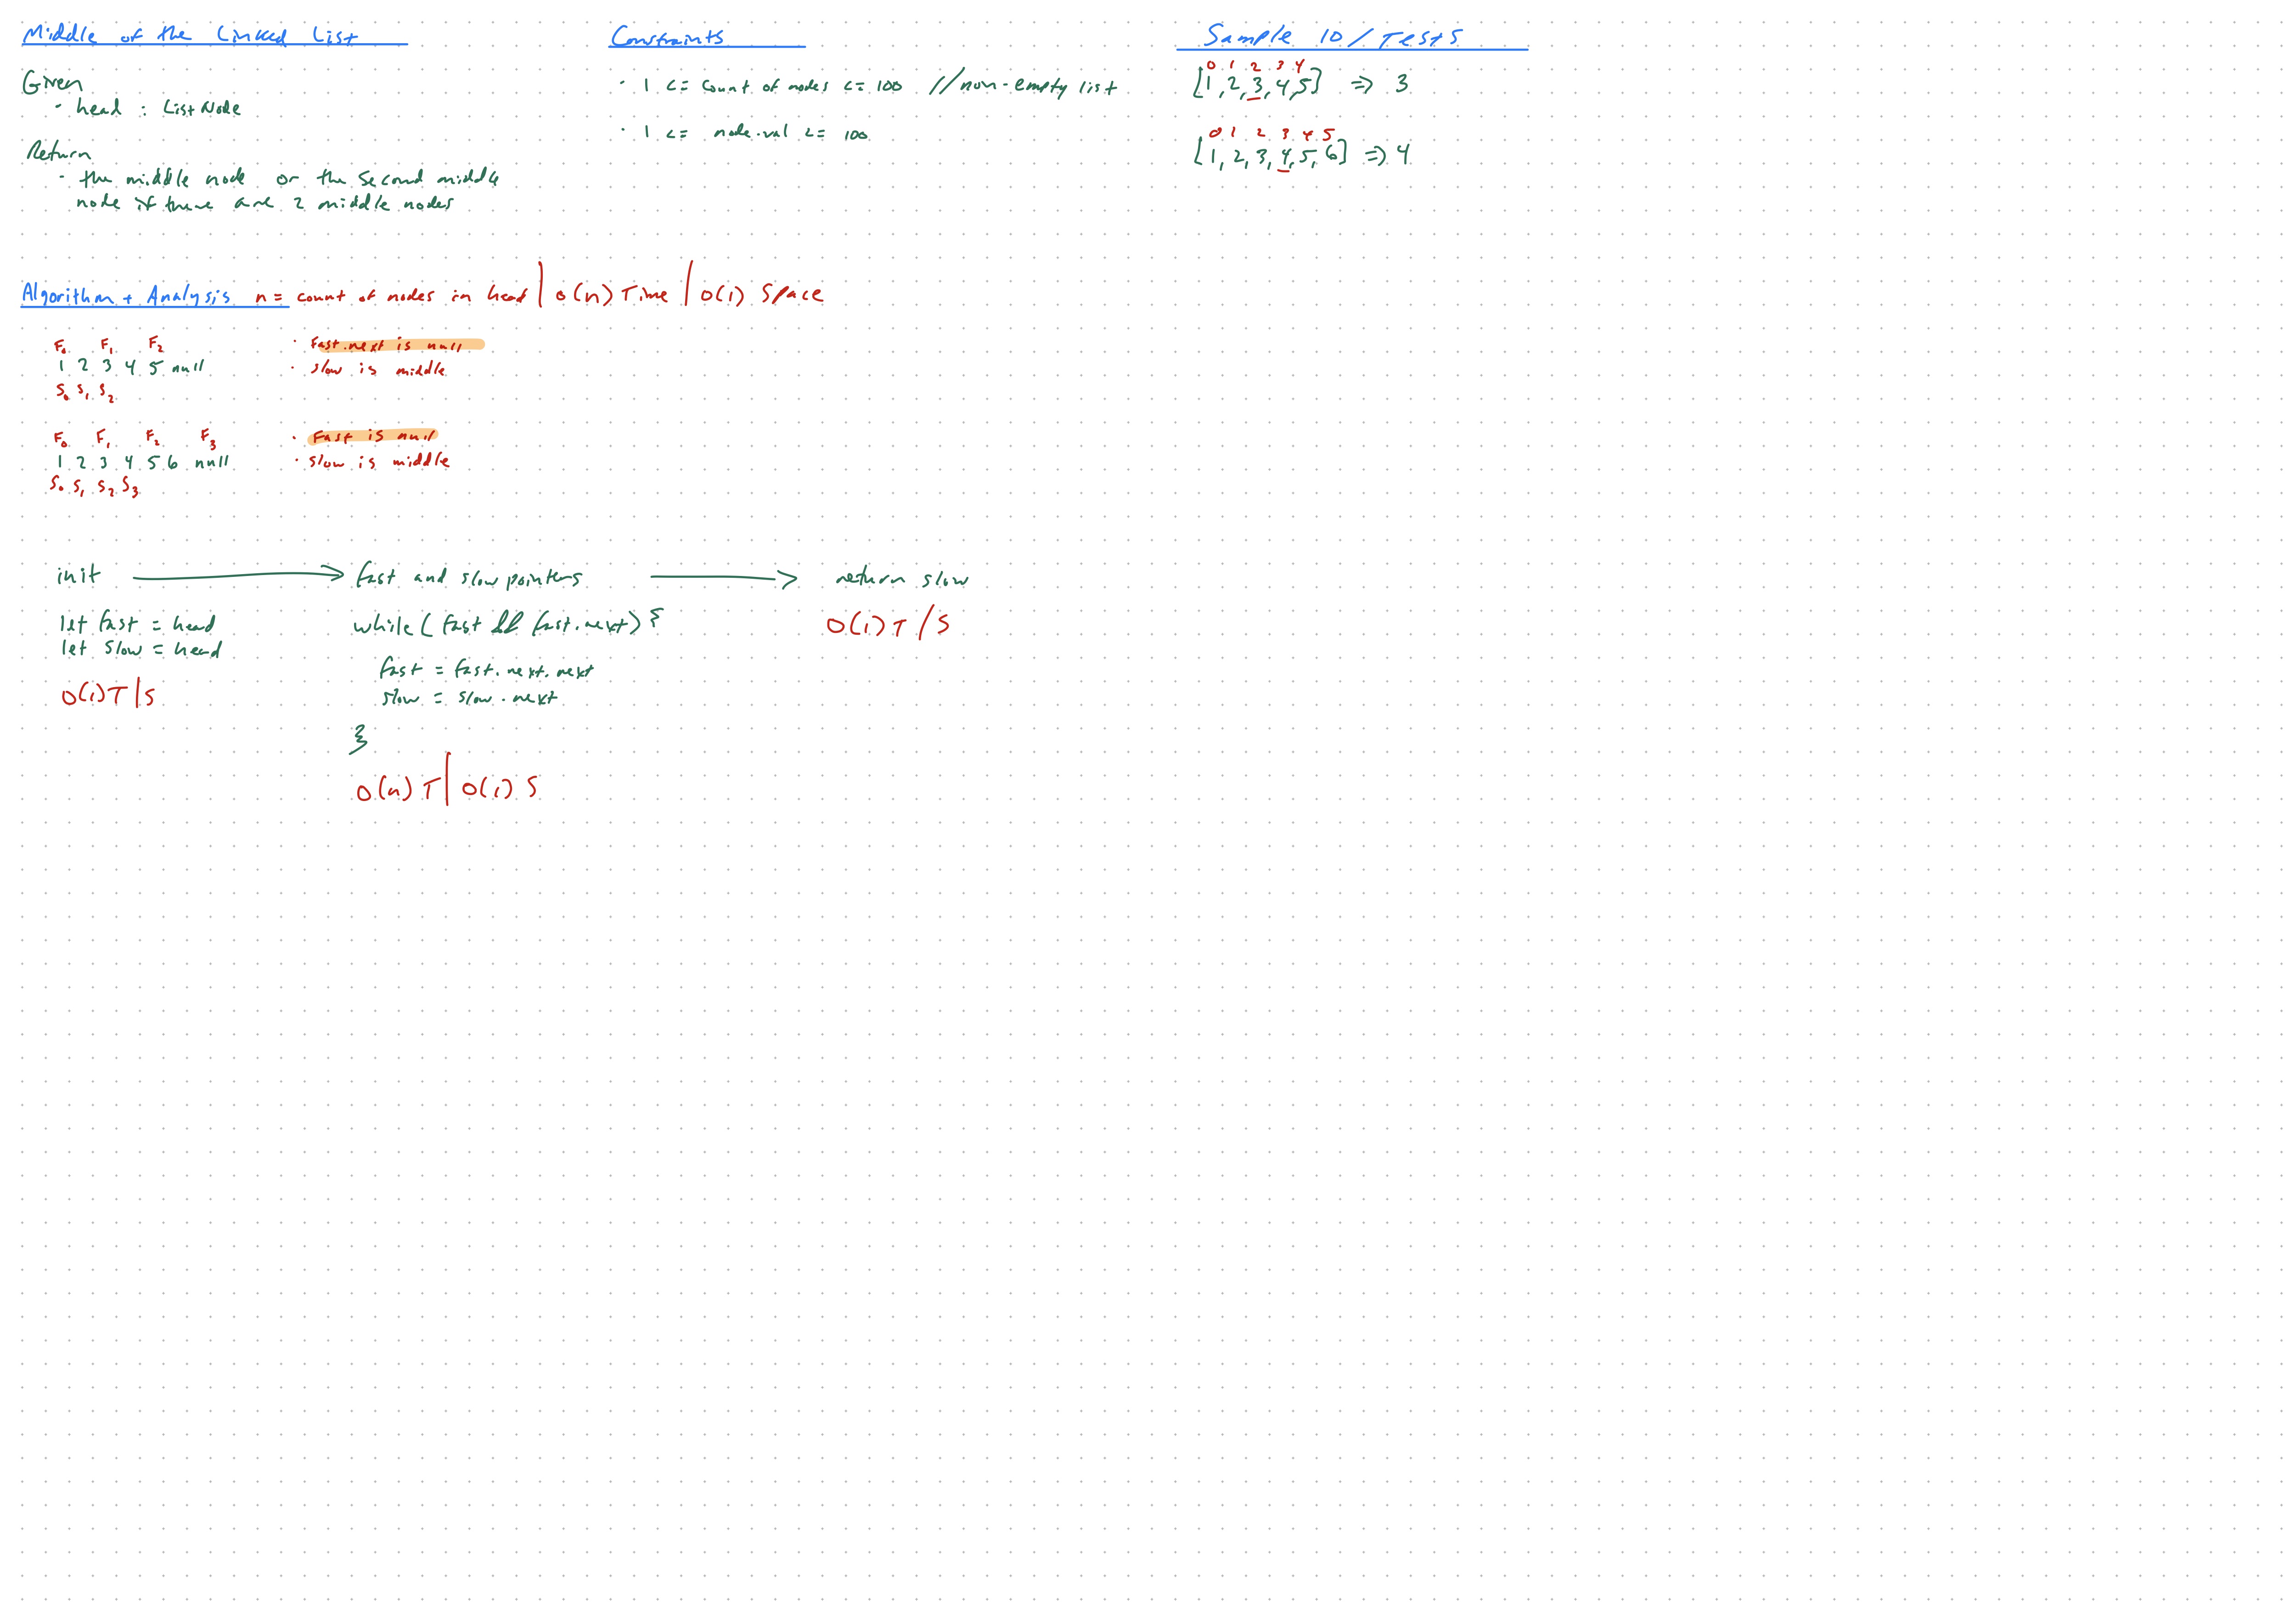 Middle of the Linked List
Given
· head : ListNode
Return
· the middle node or the second middle
node if there are 2 middle nodes
Constraints
· 1 <= count of nodes <= 100 // non-empty list
· 1 <= node.val <= 100
Sample IO / Tests
0 1 2 3 4
[1, 2, 3, 4, 5] => 3
0 1 2 3 4 5
[1, 2, 3, 4, 5, 6] => 4
Algorithm + Analysis n = count of nodes in head | O(n) Time | O(1) Space
F₀ F₁ F₂
1 2 3 4 5 null
S₀ S₁ S₂
· Fast.next is null
· slow is middle
F₀ F₁ F₂ F₃
1 2 3 4 5 6 null
S₀ S₁ S₂ S₃
· Fast is null
· slow is middle
init
let fast = head
let slow = head
O(1) T | S
fast and slow pointers
while ( fast && fast.next) {
fast = fast.next.next
slow = slow.next
}
O(n) T | O(1) S
return slow
O(1) T / S